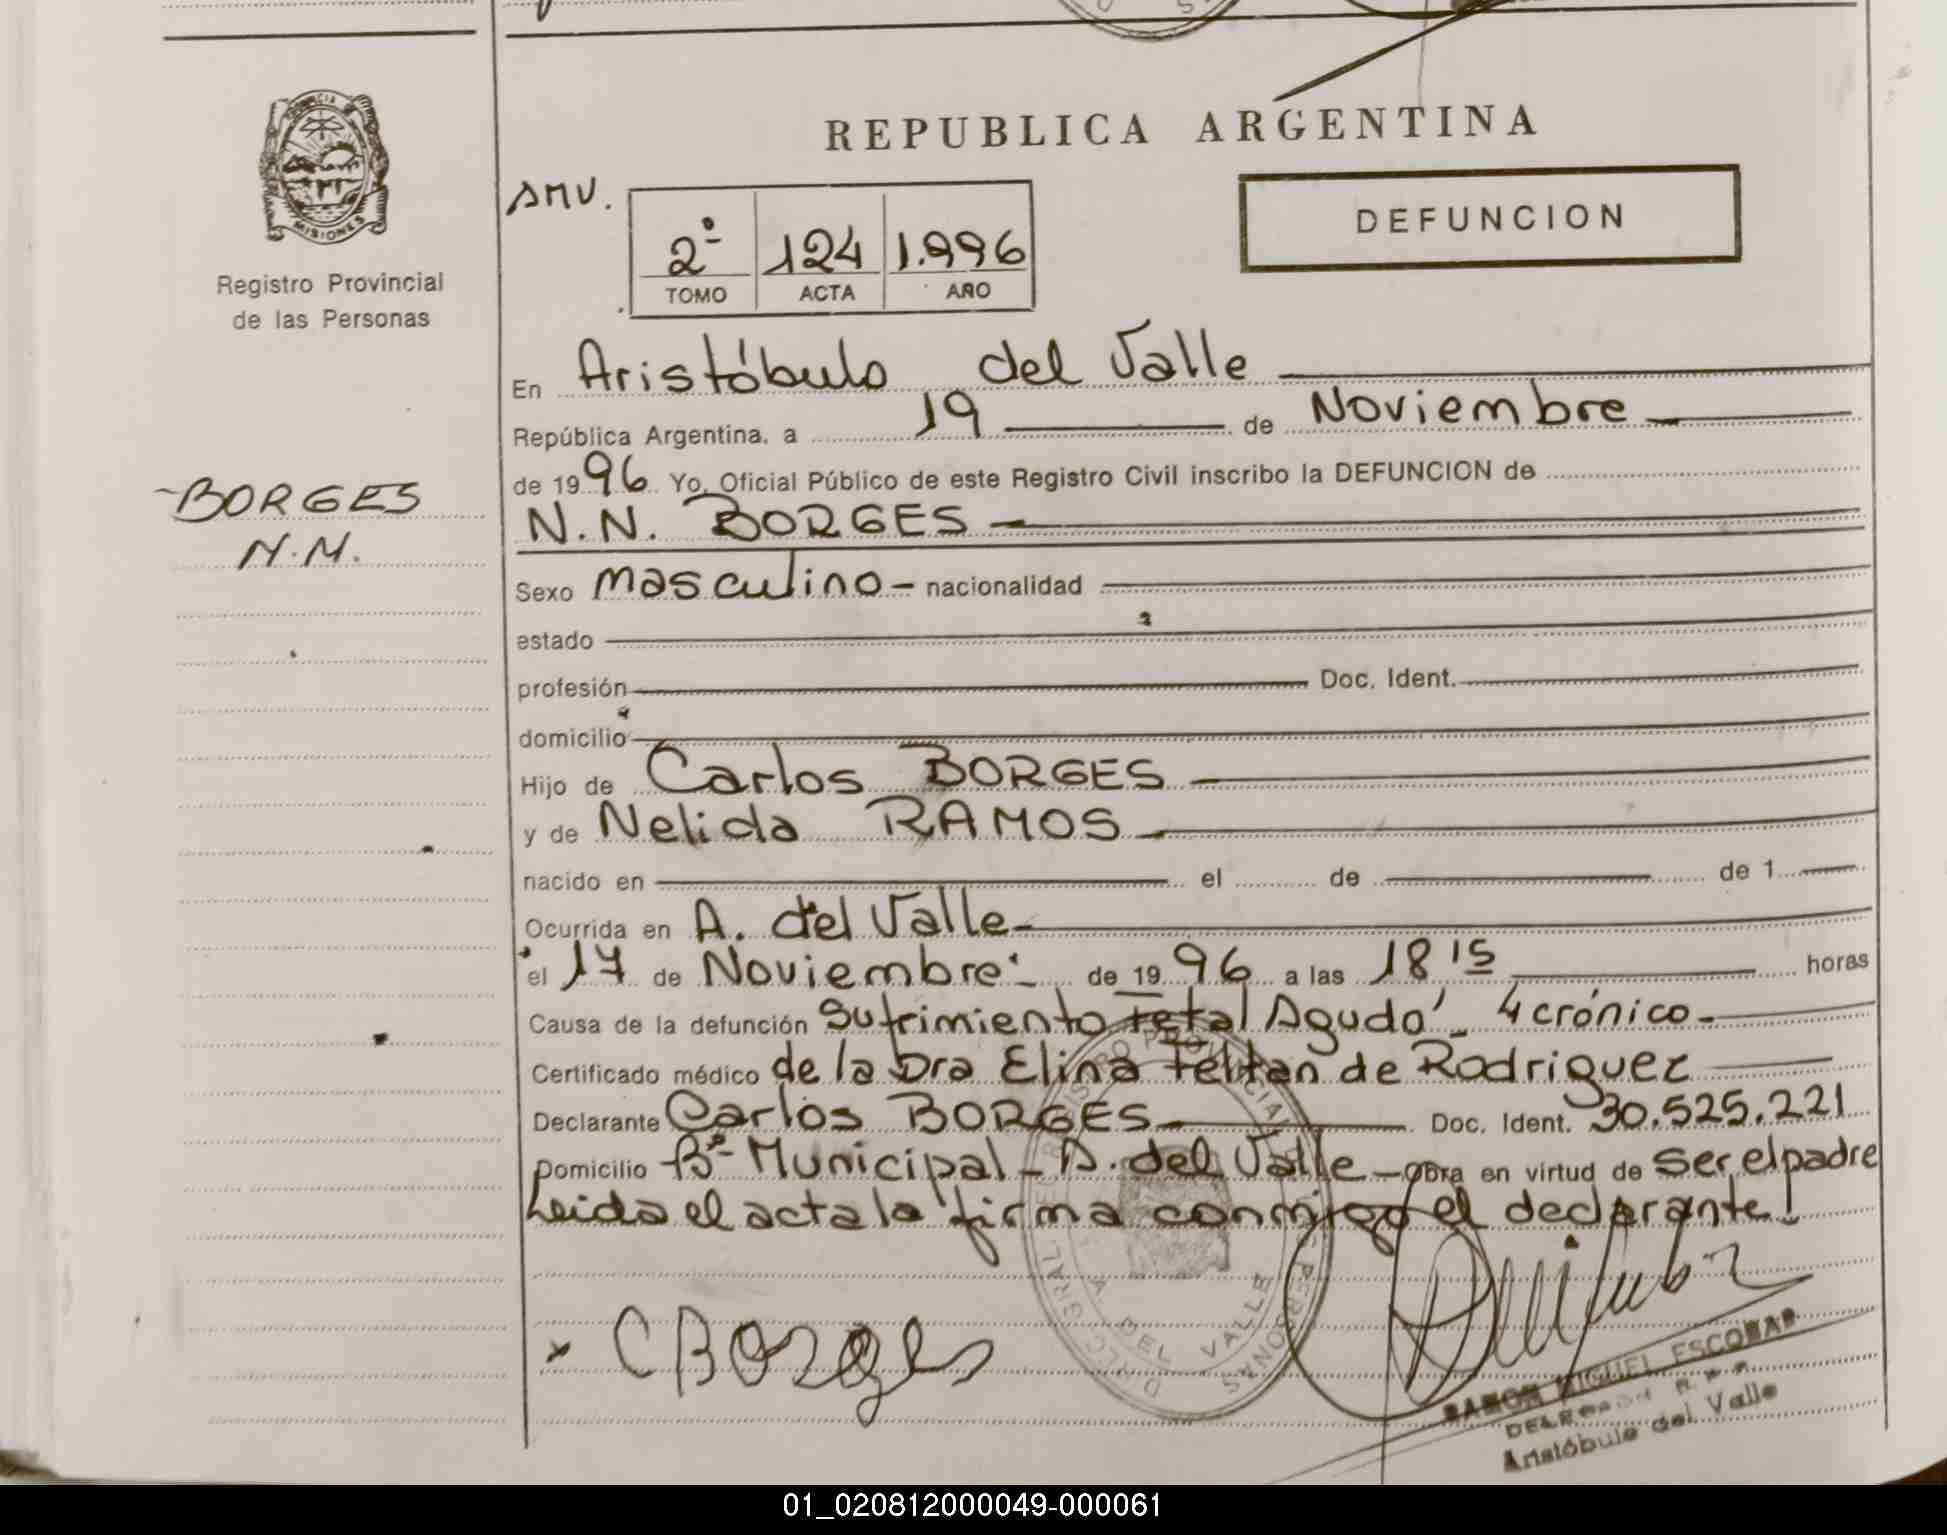 REPUBLICA ARGENTINA
PROVINCIA DE
MISIONES
Registro Provincial
de las Personas
AMV.
2º 124 1.996
TOMO ACTA AÑO
DEFUNCION
En Aristóbulo del Valle
República Argentina, a 19 de Noviembre
de 1996 Yo, Oficial Público de este Registro Civil inscribo la DEFUNCION de
BORGES
N.N.
N.N. BORGES
Sexo masculino - nacionalidad
estado
profesión Doc. Ident.
domicilio
Hijo de Carlos BORGES
y de Nelida RAMOS
nacido en el de de 1
Ocurrida en A. del Valle
el 17 de Noviembre de 1996 a las 18 15 horas
Causa de la defunción Sufrimiento fetal Agudo - y crónico
Certificado médico de la Dra Elina de Rodriguez
Declarante Carlos BORGES Doc. Ident. 30.525.221
Domicilio Bº Municipal - A. del Valle - obra en virtud de ser el padre
Leida el acta la firma conmigo el declarante!
x C Borges
REGISTRO PROVINCIAL DE LAS PERSONAS
A. DEL VALLE
RAMON MIGUEL ESCOBAR
Aristóbulo del Valle
01_020812000049-000061